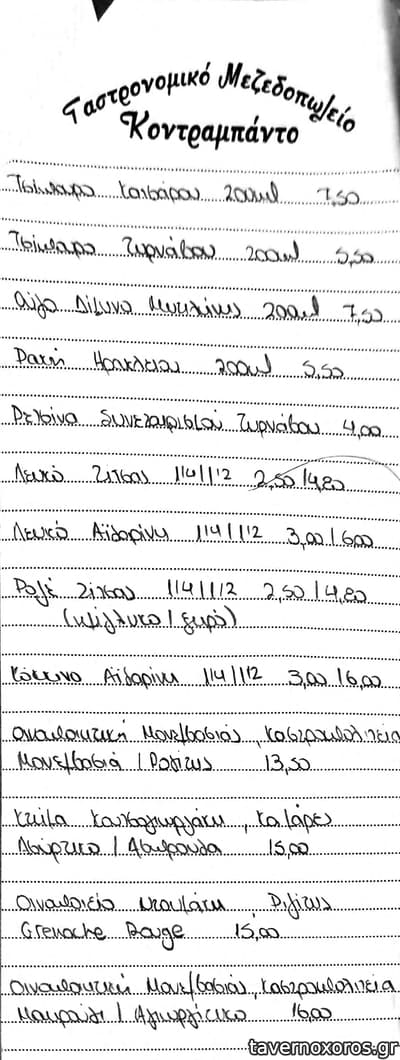 Γαστρονομικό Μεζεδοπωλείο
Κοντραμπάντο
Τσίπουρο Κατσάρου 200ml 7,50
Τσίπουρο Τυρνάβου 200ml 5,50
Ούζο Δίδυμο Μυτιλήνης 200ml 7,50
Ρακή Ηρακλείου 200ml 5,50
Ρετσίνα Συνεταιρισμού Τυρνάβου 4,00
Λευκό Ζίτσας 1/4 / 1/2 2,50/4,80
Λευκό Αϊδαρίνι 1/4 / 1/2 3,00/6,00
Ροζέ Ζίτσας 1/4 / 1/2 2,50/4,80
(ημίγλυκο / ξηρό)
Κόκκινο Αϊδαρίνι 1/4 / 1/2 3,00/6,00
Οινοποιητική Μονεμβασιάς,
Μονεμβασιά / 13,50
Κτήμα
15,00
Οινοποιείο Ντουλάκη,
Grenache Rouge 15,00
Οινοποιητική Μονεμβασιάς,
Μαυράκι / Αγιωργίτικο 16,00
tavernoxoros.gr